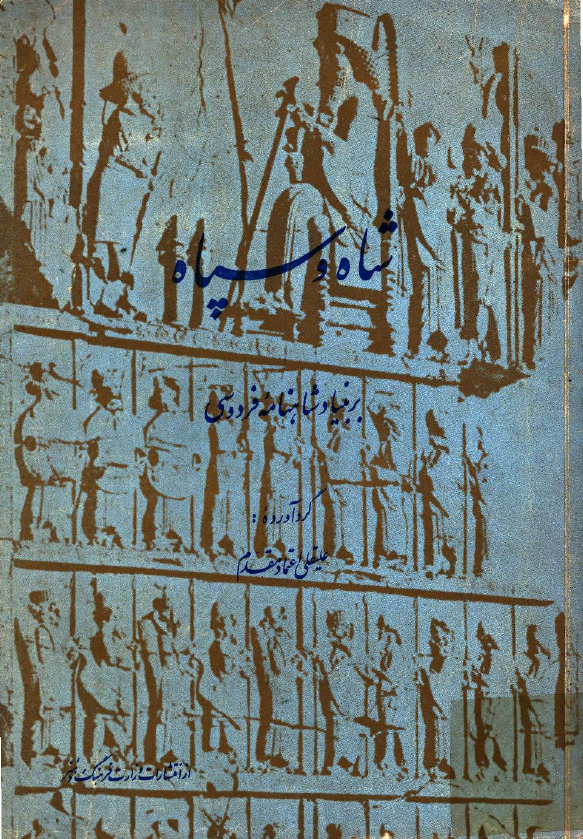 شاه و سپاه
بر بنیاد شاهنامهٔ فردوسی
گردآورده :
علیقلی اعتماد مقدم
از انتشارات وزارت فرهنگ و هنر